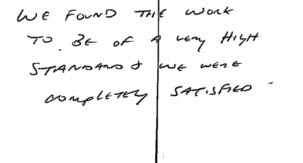 WE FOUND THE WORK
TO BE OF A VERY HIGH
STANDARD & WE WERE
COMPLETELY SATISFIED.